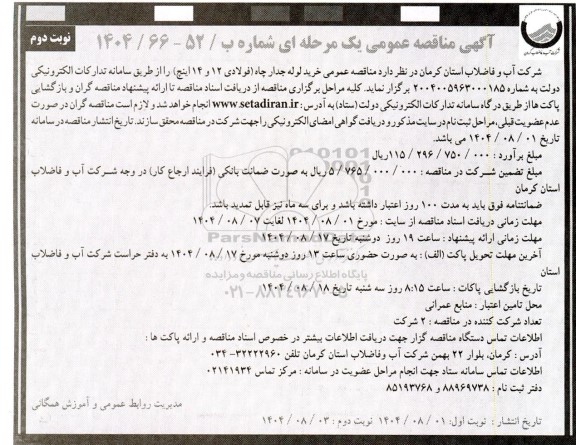 نوبت دوم
آگهی مناقصه عمومی یک مرحله ای شماره ب / ۵۲ - ۶۶ / ۱۴۰۴
شرکت آب و فاضلاب استان کرمان در نظر دارد مناقصه عمومی خرید لوله جدار چاه (فولادی ۱۲ و ۱۴ اینچ) را از طریق سامانه تدارکات الکترونیکی
دولت به شماره ۲۰۰۴۰۰۵۹۶۳۰۰۰۱۸۵ برگزار نماید. کلیه مراحل برگزاری مناقصه از دریافت اسناد مناقصه تا ارائه پیشنهاد مناقصه گران و بازگشایی
پاکت ها از طریق درگاه سامانه تدارکات الکترونیکی دولت (ستاد) به آدرس: www.setadiran.ir انجام خواهد شد و لازم است مناقصه گران در صورت
عدم عضویت قبلی، مراحل ثبت نام در سایت مذکور و دریافت گواهی امضای الکترونیکی را جهت شرکت در مناقصه محقق سازند. تاریخ انتشار مناقصه در سامانه
تاریخ ۰۱ / ۰۸ / ۱۴۰۴ می باشد.
مبلغ برآورد : ۰۰۰ / ۷۵۰ / ۲۹۶ / ۱۱۵ ریال
مبلغ تضمین شرکت در مناقصه : ۰۰۰ / ۰۰۰ / ۷۶۵ / ۵ ریال به صورت ضمانت بانکی (فرایند ارجاع کار) در وجه شرکت آب و فاضلاب
استان کرمان
ضمانتنامه فوق باید به مدت ۱۰۰ روز اعتبار داشته باشد و برای سه ماه نیز قابل تمدید باشد.
مهلت زمانی دریافت اسناد مناقصه از سایت : مورخ ۰۱ / ۰۸ / ۱۴۰۴ لغایت ۰۷ / ۰۸ / ۱۴۰۴
مهلت زمانی ارائه پیشنهاد : ساعت ۱۹ روز دوشنبه تاریخ ۱۷ / ۰۸ / ۱۴۰۴
آخرین مهلت تحویل پاکت (الف) : به صورت حضوری ساعت ۱۳ روز دوشنبه مورخ ۱۷ / ۰۸ / ۱۴۰۴ به دفتر حراست شرکت آب و فاضلاب
استان
تاریخ بازگشایی پاکات : ساعت ۸:۱۵ روز سه شنبه تاریخ ۱۸ / ۰۸ / ۱۴۰۴
محل تامین اعتبار : منابع عمرانی
تعداد شرکت کننده در مناقصه : ۲ شرکت
اطلاعات تماس دستگاه مناقصه گزار جهت دریافت اطلاعات بیشتر در خصوص اسناد مناقصه و ارائه پاکت ها :
آدرس : کرمان، بلوار ۲۲ بهمن شرکت آب وفاضلاب استان کرمان تلفن ۳۲۲۲۲۹۶۰- ۰۳۴
اطلاعات تماس سامانه ستاد جهت انجام مراحل عضویت در سامانه : مرکز تماس ۰۲۱۴۱۹۳۴
دفتر ثبت نام : ۸۸۹۶۹۷۳۸ و ۸۵۱۹۳۷۶۸
مدیریت روابط عمومی و آموزش همگانی
تاریخ انتشار : نوبت اول: ۰۱ / ۰۸ / ۱۴۰۴ نوبت دوم : ۰۳ / ۰۸ / ۱۴۰۴
پایگاه اطلاع رسانی مناقصه و مزایده